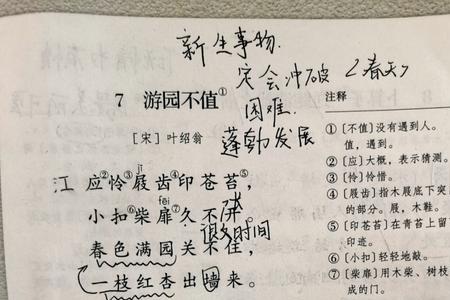 新生事物
定会冲破 <春天>
困难
蓬勃发展
7 游园不值①
[宋] 叶绍翁
江 应②怜③屐齿④印苍苔⑤，
小扣⑥柴扉⑦久不开。
很多时间
春色满园关不住，
一枝红杏出墙来。
注释
①〔不值〕没有遇到人。
值，遇到。
②〔应〕大概，表示猜测。
③〔怜〕怜惜。
④〔屐齿〕指木屐底下突
的部分。屐，木鞋。
⑤〔印苍苔〕在青苔上留
印迹。
⑥〔小扣〕轻轻地敲。
⑦〔柴扉〕用木柴、树枝
成的门。